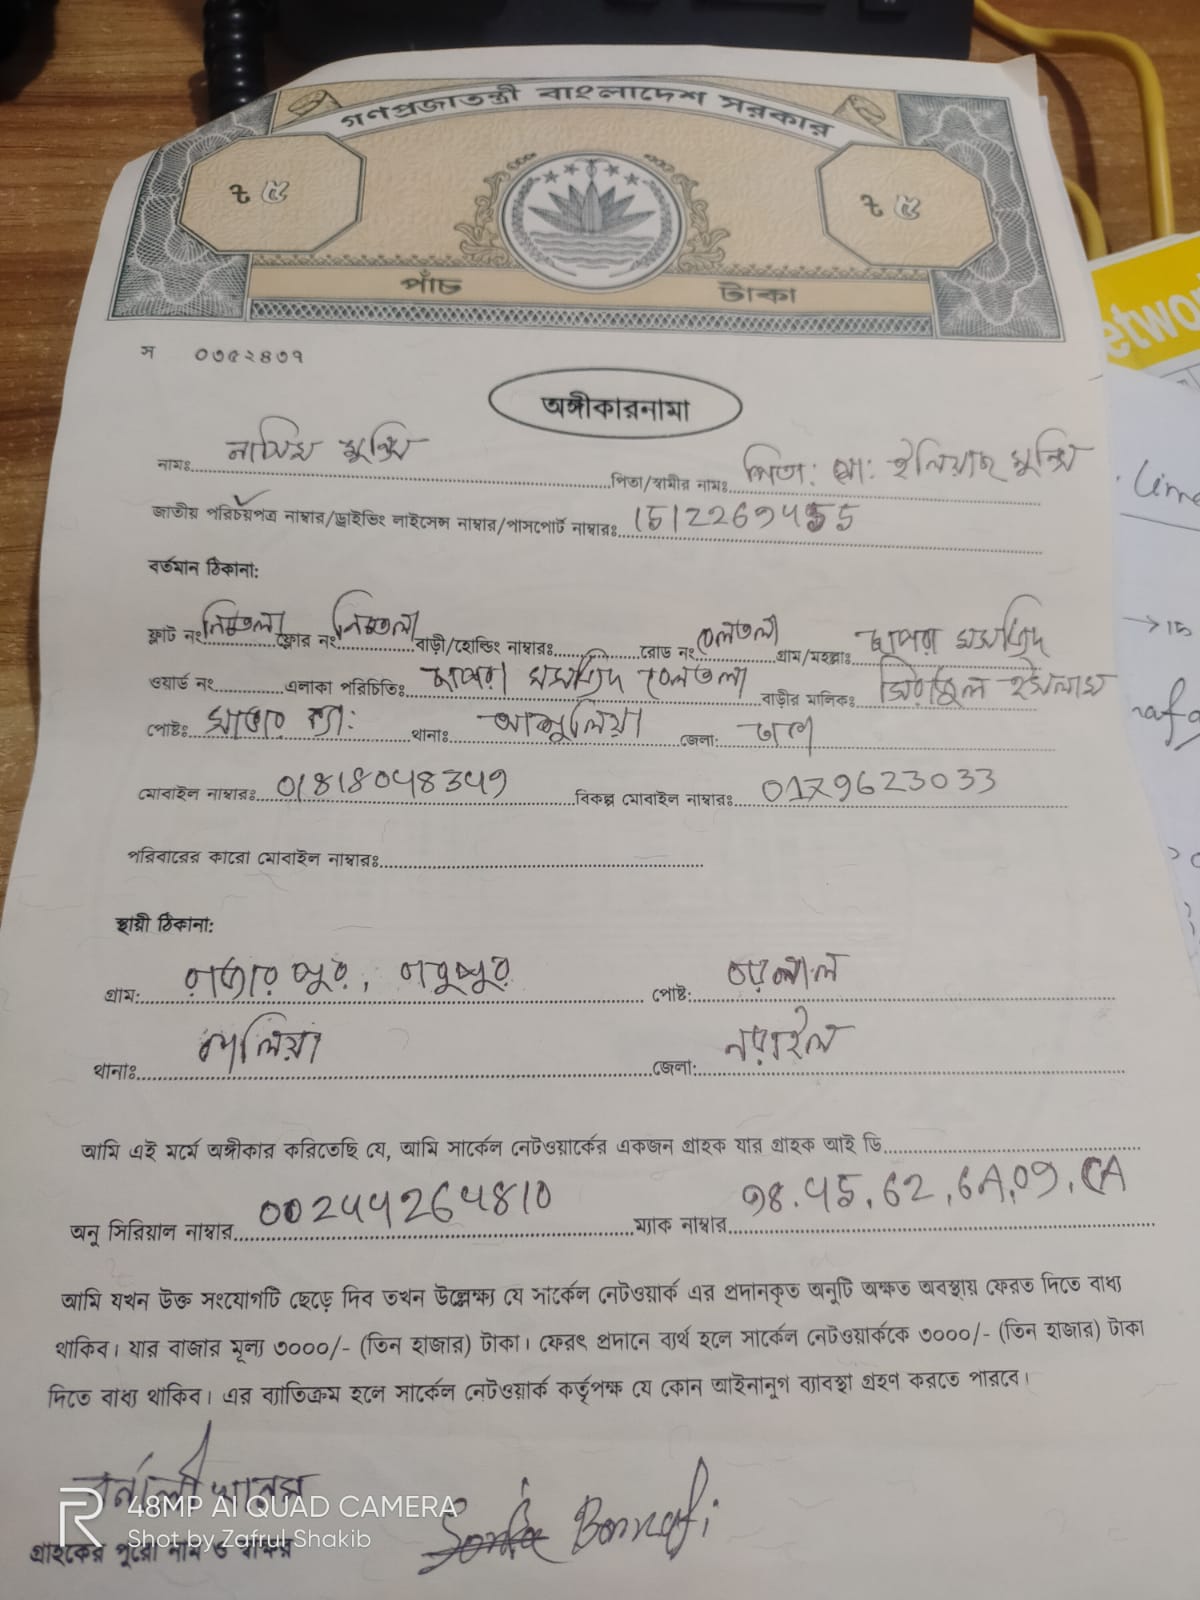 গণপ্রজাতন্ত্রী বাংলাদেশ সরকার
৳ ৫ ৳ ৫
পাঁচ টাকা
স ০৩৫২৪৩৭
অঙ্গীকারনামা
নামঃ নাসিম মুন্সি পিতা/স্বামীর নামঃ পিতা: মো: ইলিয়াছ মুন্সি
জাতীয় পরিচয়পত্র নাম্বার/ড্রাইভিং লাইসেন্স নাম্বার/পাসপোর্ট নাম্বারঃ
বর্তমান ঠিকানা:
ফ্লাট নং নিচতলা ফ্লোর নং নিচতলা বাড়ী/হোল্ডিং নাম্বারঃ রোড নং বেলতলা গ্রাম/মহল্লাঃ ছাপরা মসজিদ
ওয়ার্ড নং এলাকা পরিচিতিঃ ছাপরা মসজিদ বেলতলা বাড়ীর মালিকঃ ইসলাম
পোষ্টঃ থানাঃ আশুলিয়া জেলা: ঢাকা
মোবাইল নাম্বারঃ 01818048349 বিকল্প মোবাইল নাম্বারঃ 0179623033
পরিবারের কারো মোবাইল নাম্বারঃ
স্থায়ী ঠিকানা:
গ্রাম: পোষ্ট:
থানাঃ জেলা: নড়াইল
আমি এই মর্মে অঙ্গীকার করিতেছি যে, আমি সার্কেল নেটওয়ার্কের একজন গ্রাহক যার গ্রাহক আই ডি
অনু সিরিয়াল নাম্বার 002449264810 ম্যাক নাম্বার 98.45.62.6A.09.CA
আমি যখন উক্ত সংযোগটি ছেড়ে দিব তখন উল্লেক্ষ্য যে সার্কেল নেটওয়ার্ক এর প্রদানকৃত অনুটি অক্ষত অবস্থায় ফেরত দিতে বাধ্য
থাকিব। যার বাজার মূল্য ৩০০০/- (তিন হাজার) টাকা। ফেরৎ প্রদানে ব্যর্থ হলে সার্কেল নেটওয়ার্ককে ৩০০০/- (তিন হাজার) টাকা
দিতে বাধ্য থাকিব। এর ব্যাতিক্রম হলে সার্কেল নেটওয়ার্ক কর্তৃপক্ষ যে কোন আইনানুগ ব্যাবস্থা গ্রহণ করতে পারবে।
বর্নালী খানম
গ্রাহকের পুরো নাম ও স্বাক্ষর
48MP AI QUAD CAMERA
Shot by Zafrul Shakib